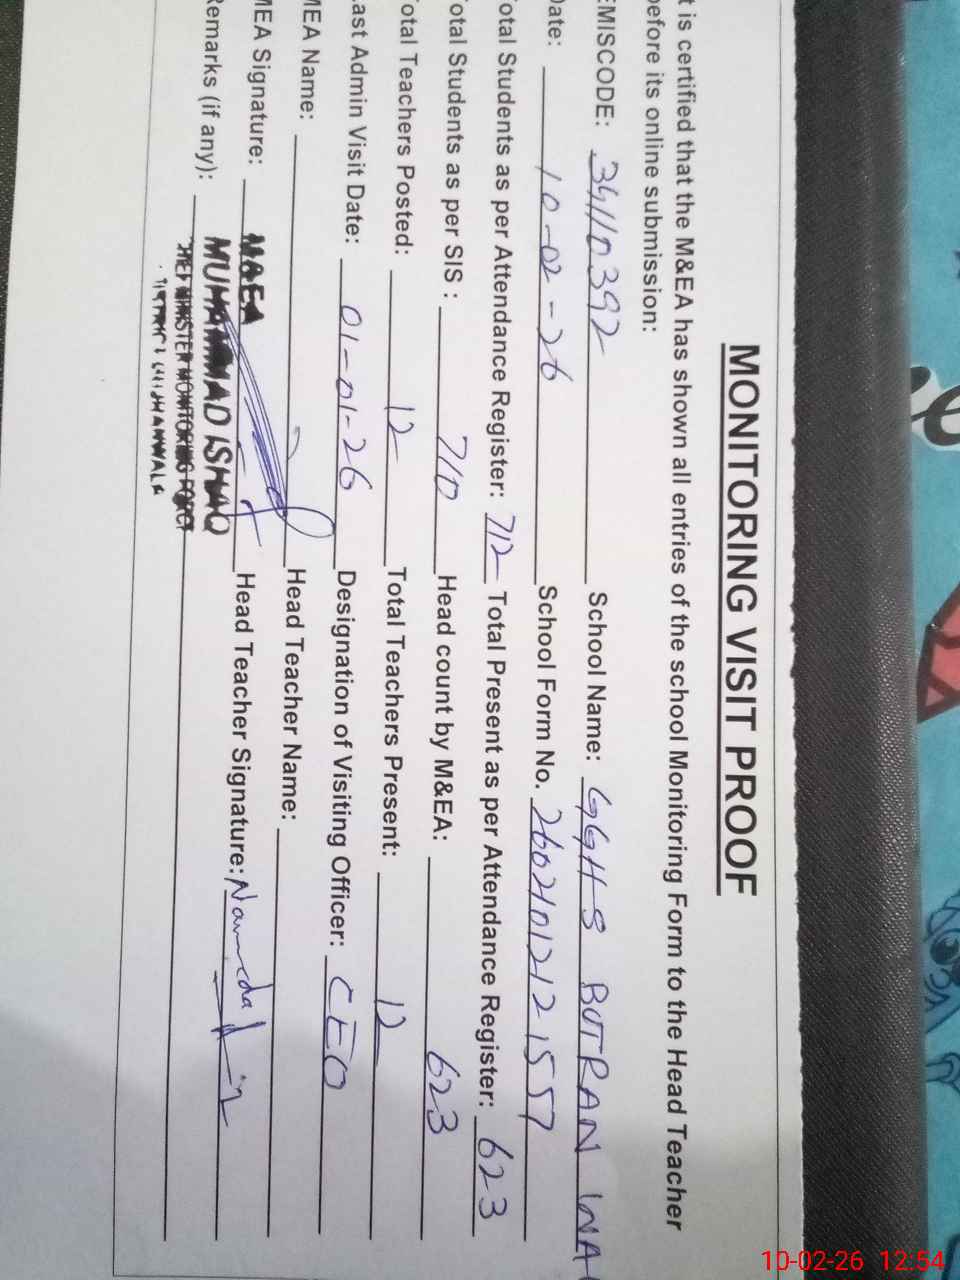 MONITORING VISIT PROOF
t is certified that the M&EA has shown all entries of the school Monitoring Form to the Head Teacher
before its online submission:
EMISCODE: 34110392 School Name: GGHS BUTRAN WA
Date: 10-02-26 School Form No. 26021012121557
Total Students as per Attendance Register: 712 Total Present as per Attendance Register: 623
Total Students as per SIS: 710 Head count by M&EA: 623
Total Teachers Posted: 12 Total Teachers Present: 12
Last Admin Visit Date: 01-01-26 Designation of Visiting Officer: CEO
MEA Name: Head Teacher Name:
MEA Signature: Head Teacher Signature:
Remarks (if any):
MAEA
MUHAMMAD ISHAQ
CHIEF MINISTER MONITORING FORCE
10-02-26 12:54